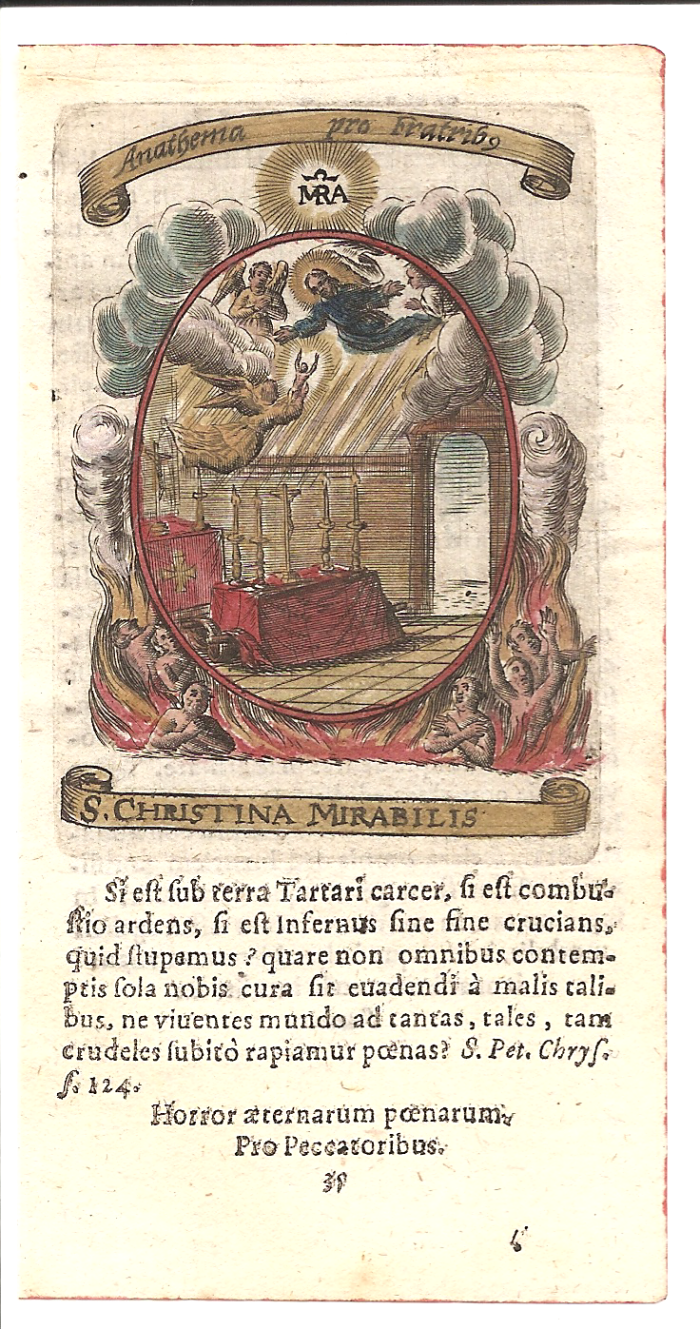 Anathema pro fratrib9
MRA
S. CHRISTINA MIRABILIS
Si eſt ſub terra Tartari carcer, ſi eſt combu-
ſtio ardens, ſi eſt Infernus ſine fine crucians,
quid ſtupemus? quare non omnibus contem-
ptis ſola nobis cura ſit euadendi à malis tali-
bus, ne viuentes mundo ad tantas, tales, tam
crudeles ſubitò rapiamur pœnas? S. Pet. Chryſ.
ſ. 124.
Horror æternarum pœnarum.
Pro Peccatoribus.